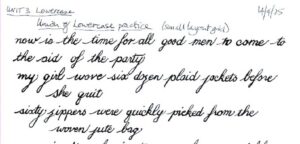 UNIT 3 Lowercase 14/4/25
Union of Lowercase practice (small layout grid)
now is the time for all good men to come to
the aid of the party
my girl wove six dozen plaid jackets before
she quit
sixty zippers were quickly picked from the
woven jute bag